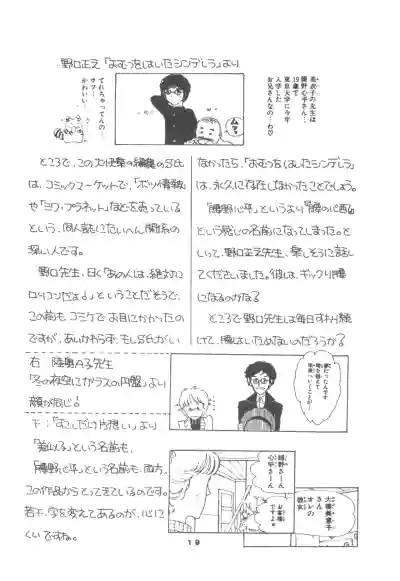 野口正之「おむつをはいたシンデレラ」より
美衣子の先生は
腰野心平さん…
19歳で
東京大学に今年
入学した
お兄さんなの──わ♡
てれちゃってんの
かわいい…
なかったら、「おむつをはいたシンデレラ」
は、永久に存在しなかったことでしょう。
「腰野心平」というより「腰の心配」
という感じの名前になってしまった。と
いって、野口正之先生、楽しそうに話し
てくださいました。彼は、ギックリ腰
になるのかなぁ
ところで野口先生は毎日すわり続
けて、腰はいためないのだろうか？
ところで、この大快楽の編集のS氏
は、コミックマーケットで、「ポツ情報」
や「ミラ・プラネット」などを売っている
という、同人誌にたいへん関係の
深い人です。
野口先生、曰く「あの人は、絶対に
ロリコンだよ」ということだそうで、
この前も、コミケでお目にかかったの
ですが、あいかわらず、もしS氏がい
右　陸奥A子先生
「冬の夜空にガラスの円盤」より
顔が同じ！
下：「すこしだけ片想い」より
「美以子」という名前も、
「腰野心平」という名前も、両方、
この作品からとってきているのです。
若干、字を変えてあるのが、心に
くいですね。
夢だったんです
時を越えて
未来へいくことが
嬉野さーん
心平さーん
お客様
ですよォ
大橋美意子
さん
オレの
彼女
19